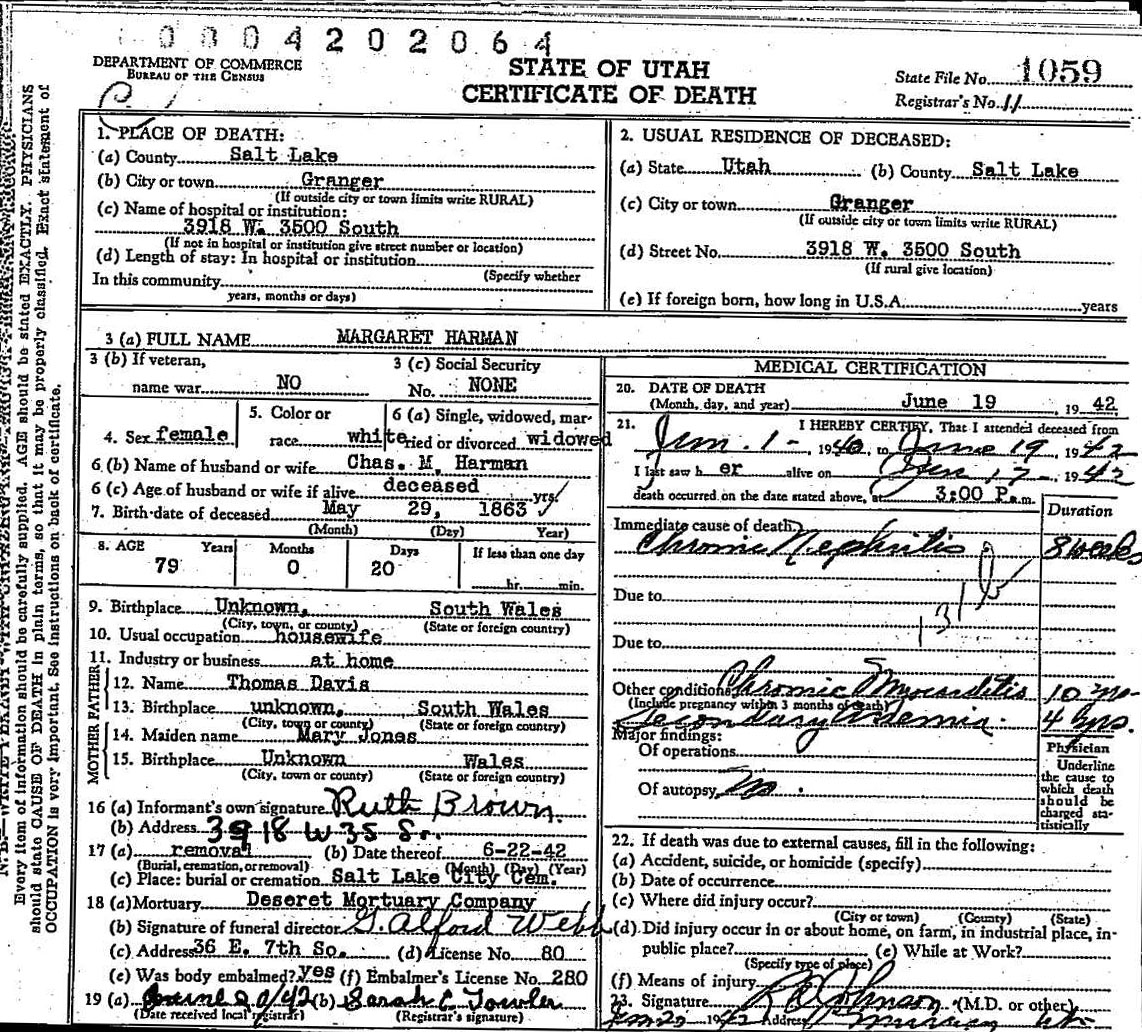 0004202064
DEPARTMENT OF COMMERCE
BUREAU OF THE CENSUS
STATE OF UTAH
CERTIFICATE OF DEATH
State File No. 1059
Registrar's No. 11
N. B.—WRITE PLAINLY WITH
Every item of information should be carefully supplied. AGE should be stated EXACTLY. PHYSICIANS
should state CAUSE OF DEATH in plain terms, so that it may be properly classified. Exact statement of
OCCUPATION is very important. See instructions on back of certificate.
1. PLACE OF DEATH:
(a) County Salt Lake
(b) City or town Granger
(If outside city or town limits write RURAL)
(c) Name of hospital or institution:
3918 W. 3500 South
(If not in hospital or institution give street number or location)
(d) Length of stay: In hospital or institution
(Specify whether
In this community
years, months or days)
2. USUAL RESIDENCE OF DECEASED:
(a) State Utah (b) County Salt Lake
(c) City or town Granger
(If outside city or town limits write RURAL)
(d) Street No. 3918 W. 3500 South
(If rural give location)
(e) If foreign born, how long in U.S.A. years
3 (a) FULL NAME MARGARET HARMAN
3 (b) If veteran, 3 (c) Social Security
name war NO No. NONE
4. Sex female
5. Color or
race white
6 (a) Single, widowed, mar-
ried or divorced widowed
6 (b) Name of husband or wife Chas. M. Harman
6 (c) Age of husband or wife if alive deceased yrs.
7. Birth-date of deceased May 29, 1863
(Month) (Day) Year)
8. AGE Years Months Days If less than one day
79 0 20 hr. min.
9. Birthplace Unknown, South Wales
(City, town, or county) (State or foreign country)
10. Usual occupation housewife
11. Industry or business at home
FATHER
12. Name Thomas Davis
13. Birthplace unknown, South Wales
(City, town or county) (State or foreign country)
MOTHER
14. Maiden name Mary Jones
15. Birthplace Unknown Wales
(City, town or county) (State or foreign country)
16 (a) Informant's own signature Ruth Brown.
(b) Address 3918 W 35 So.
17 (a) removal (b) Date thereof 6-22-42
(Burial, cremation, or removal) (Month) (Day) (Year)
(c) Place: burial or cremation Salt Lake City Cem.
18 (a) Mortuary Deseret Mortuary Company
(b) Signature of funeral director G. Alford Webb
(c) Address 36 E. 7th So. (d) License No. 80
(e) Was body embalmed? yes (f) Embalmer's License No. 280
19 (a) June 20/42 (b) Sarah E Towler
(Date received local registrar) (Registrar's signature)
MEDICAL CERTIFICATION
20. DATE OF DEATH
(Month, day, and year) June 19, 1942
21. I HEREBY CERTIFY, That I attended deceased from
Jun. 1 - 1940, to June 19, 1942
I last saw her alive on Jun 17 - 1942
death occurred on the date stated above, at 3:00 P.m.
Duration
Immediate cause of death
Chronic Nephritis 8 weeks
Due to
131 b
Due to
Other conditions Chronic Myocarditis 10 mo-
(Include pregnancy within 3 months of death)
Secondary Anemia. 4 yrs.
Major findings:
Of operations
Of autopsy no.
Physician
Underline
the cause to
which death
should be
charged sta-
tistically
22. If death was due to external causes, fill in the following:
(a) Accident, suicide, or homicide (specify)
(b) Date of occurrence
(c) Where did injury occur?
(City or town) (County) (State)
(d) Did injury occur in or about home, on farm, in industrial place, in-
public place? (e) While at Work?
(Specify type of place)
(f) Means of injury
23. Signature Johnson (M.D. or other)
Jun 20 1942 Address